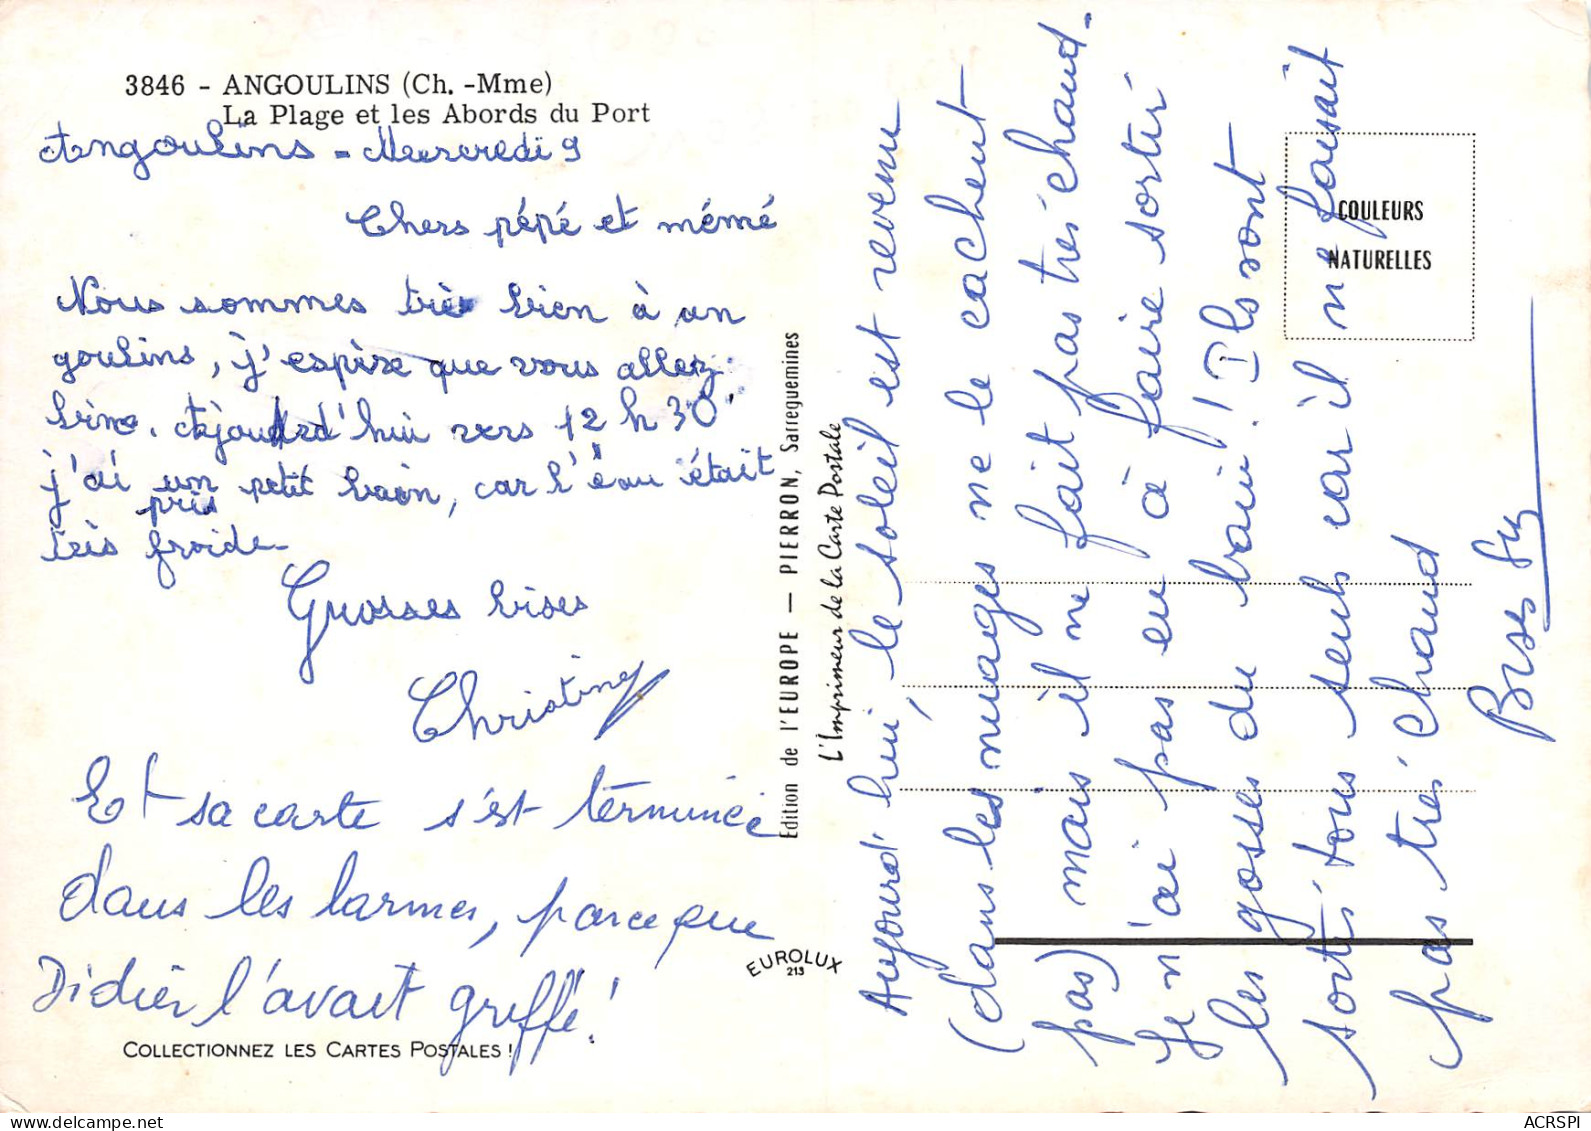 3846 - ANGOULINS (Ch. -Mme)
La Plage et les Abords du Port
Angoulins - Mercredi 9
Chers pépé et mémé
Nous sommes très bien à an
goulins, j'espère que vous allez
bien. Aujourd'hui vers 12 h 30'
j'ai pris un petit bain, car l'eau était
très froide.
Grosses bises
Christine
Et sa carte s'est terminée
dans les larmes, parce que
Didier l'avait griffé!
COLLECTIONNEZ LES CARTES POSTALES !
Edition de l'EUROPE — PIERRON, Sarreguemines
L'Imprimeur de la Carte Postale
EUROLUX
213
COULEURS
NATURELLES
Aujourd'hui, le soleil est revenu
(dans les nuages ne le cachent
pas) mais il ne fait pas très chaud.
Je n'ai pas eu à faire sortir
les gosses du bain! Ils sont
sortis tous seuls car il ne faisait
pas très chaud
Bises